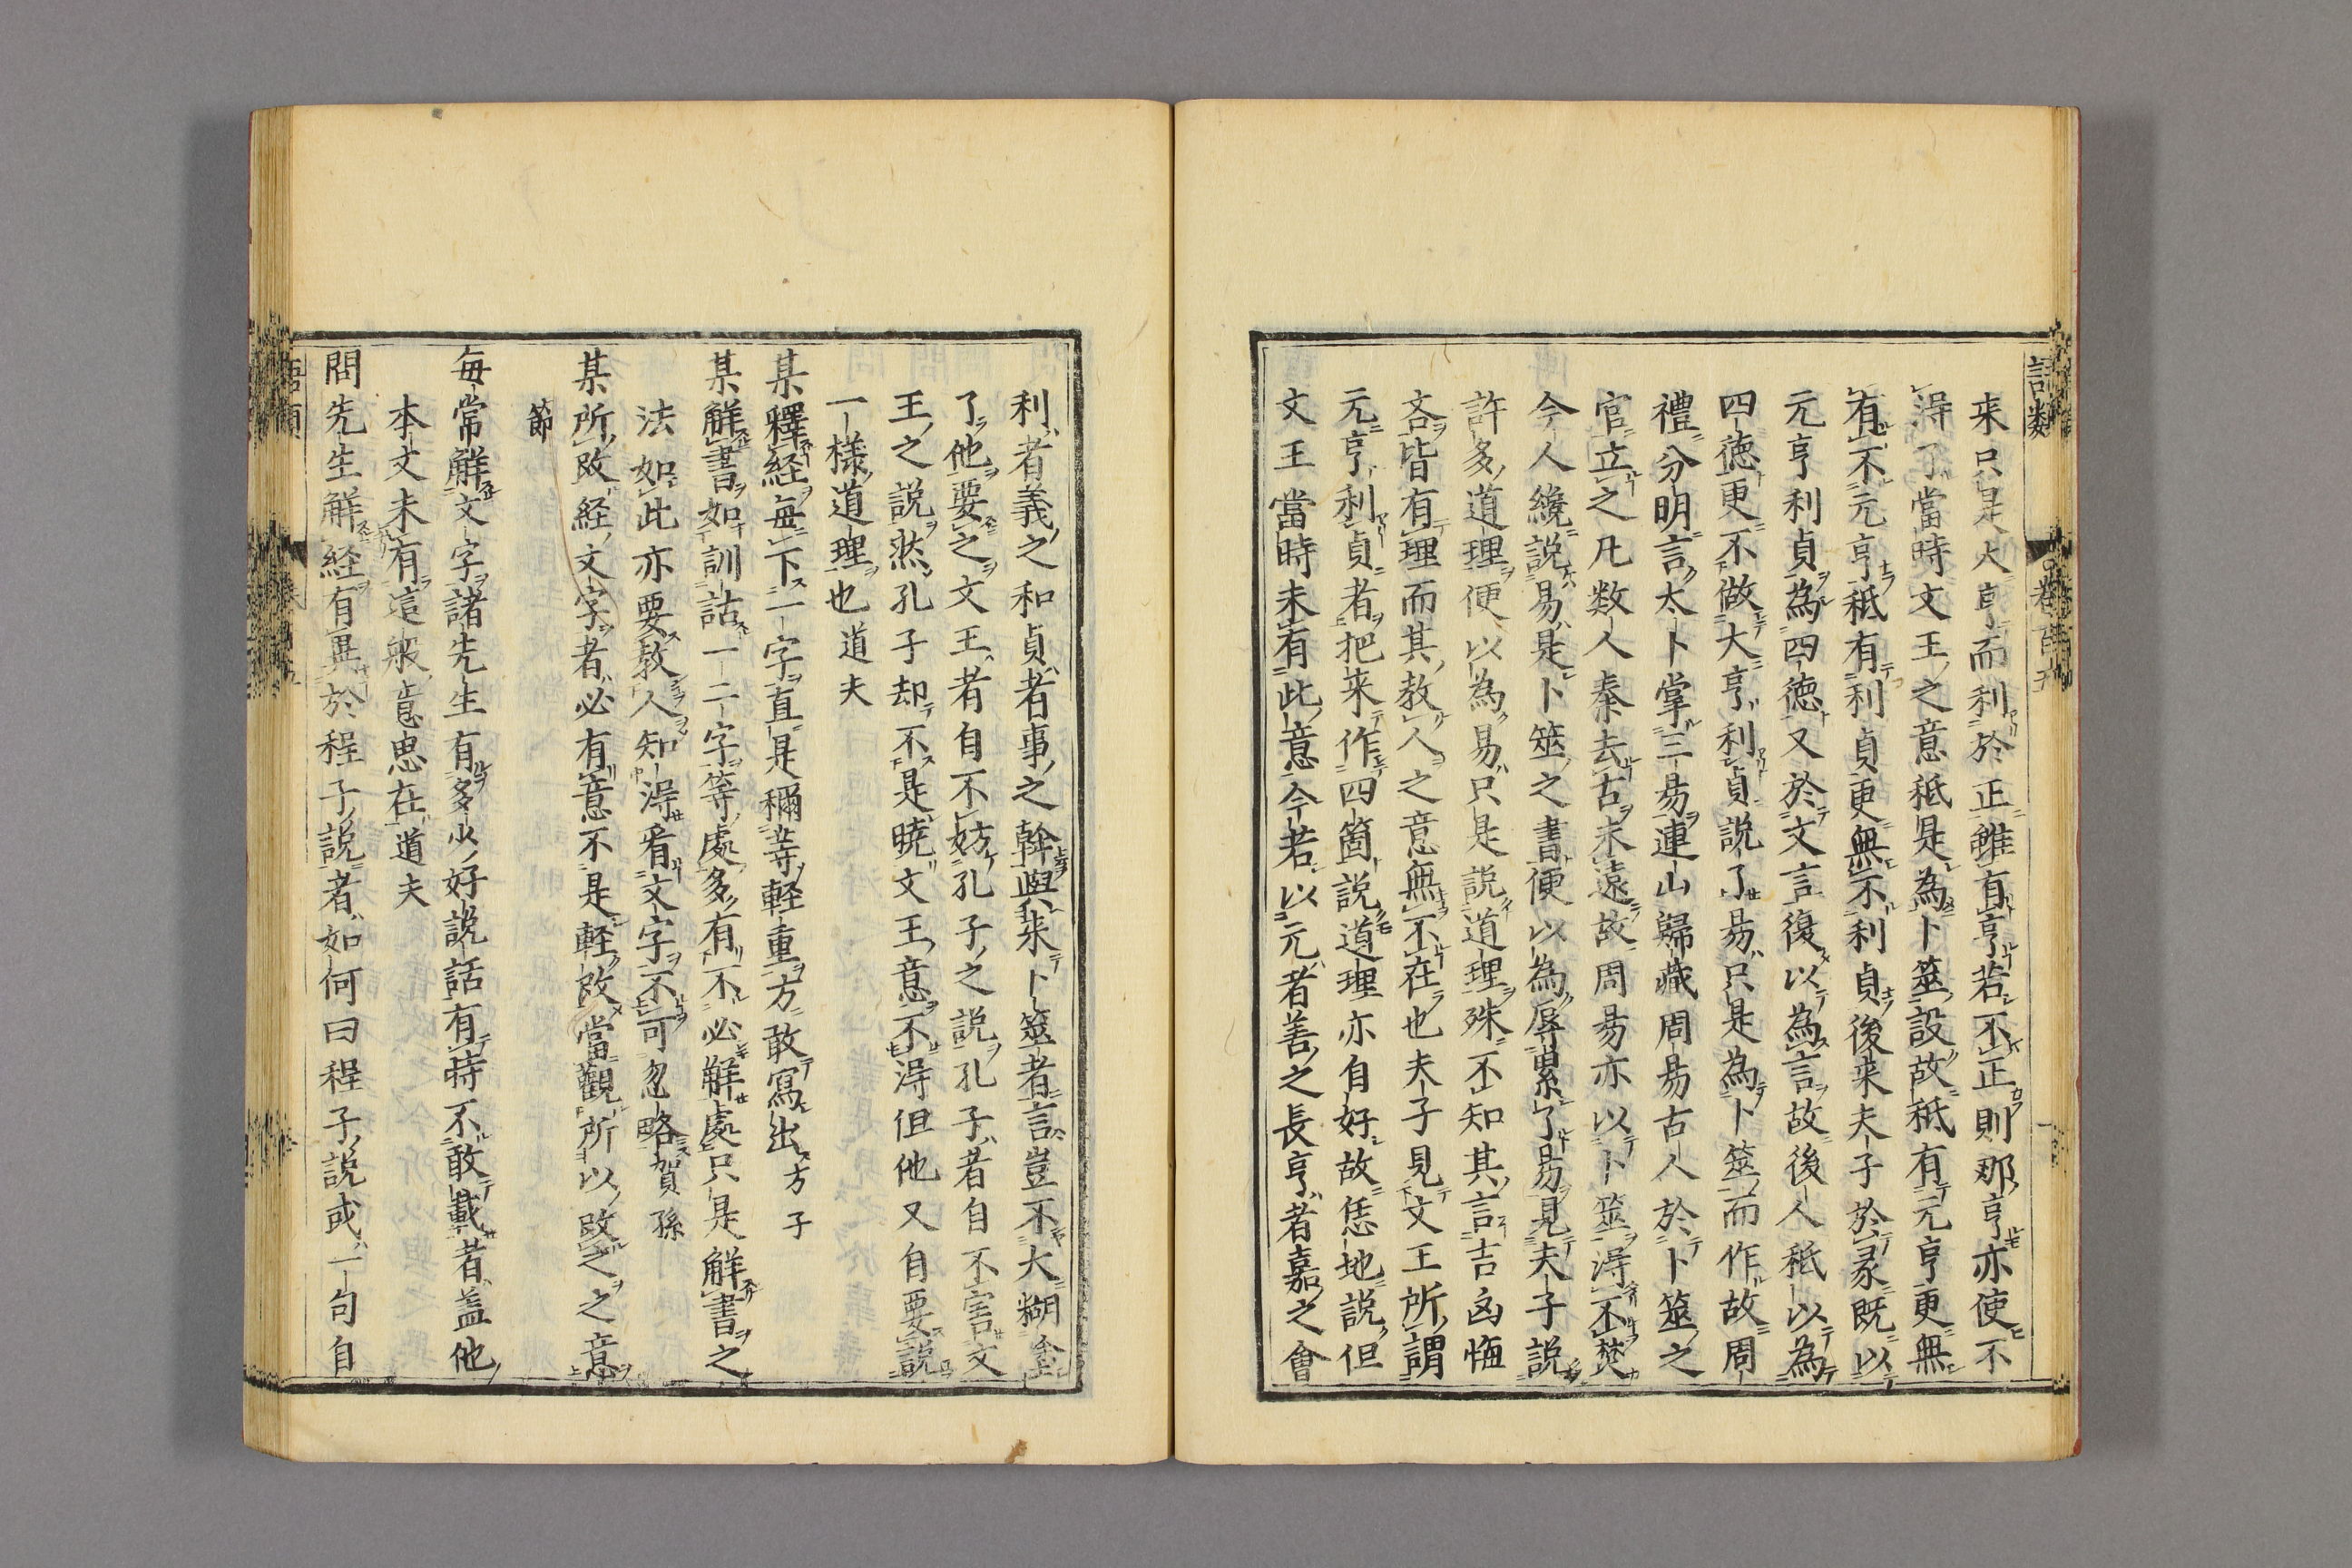 語類
卷百五
来只是大亨而利於正雖有亨若不正則那亨亦使不
淂了當時文王之意秪是為卜筮設故秪有元亨更無
有不元亨秪有利貞更無不利貞後来夫子於彖既以
元亨利貞為四德又於文言復以為言故後人秪以為
四德更不做大亨利貞說了易只是為卜筮而作故周
禮分明言太卜掌三易連山歸藏周易古人於卜筮之
官立之凡数人秦去古未遠故周易亦以卜筮淂不焚
今人纔說易是卜筮之書便以為辱累了易見夫子說
許多道理便以為易只是說道理殊不知其言吉凶悔
吝皆有理而其教人之意無不在也夫子見文王所謂
元亨利貞者把来作四箇說道理亦自好故恁地說但
文王當時未有此意今若以元者善之長亨者嘉之會
利者義之和貞者事之幹與来卜筮者言豈不大糊塗
了他要之文王者自不妨孔子之說孔子者自不害文
王之說然孔子却不是曉文王意不淂但他又自要說
一樣道理也道夫
某釋経每下一字直是稱等輕重方敢寫出方子
某解書如訓詁一二字等處多有不必解處只是解書之
法如此亦要教人知淂看文字不可忽略賀孫
某所改経文字者必有意不是輕改當觀所以改之之意
節
每常解文字諸先生有多少好說話有時不敢載者盖他
本文未有這般意思在道夫
問先生解経有異於程子說者如何曰程子說或一句自
語類